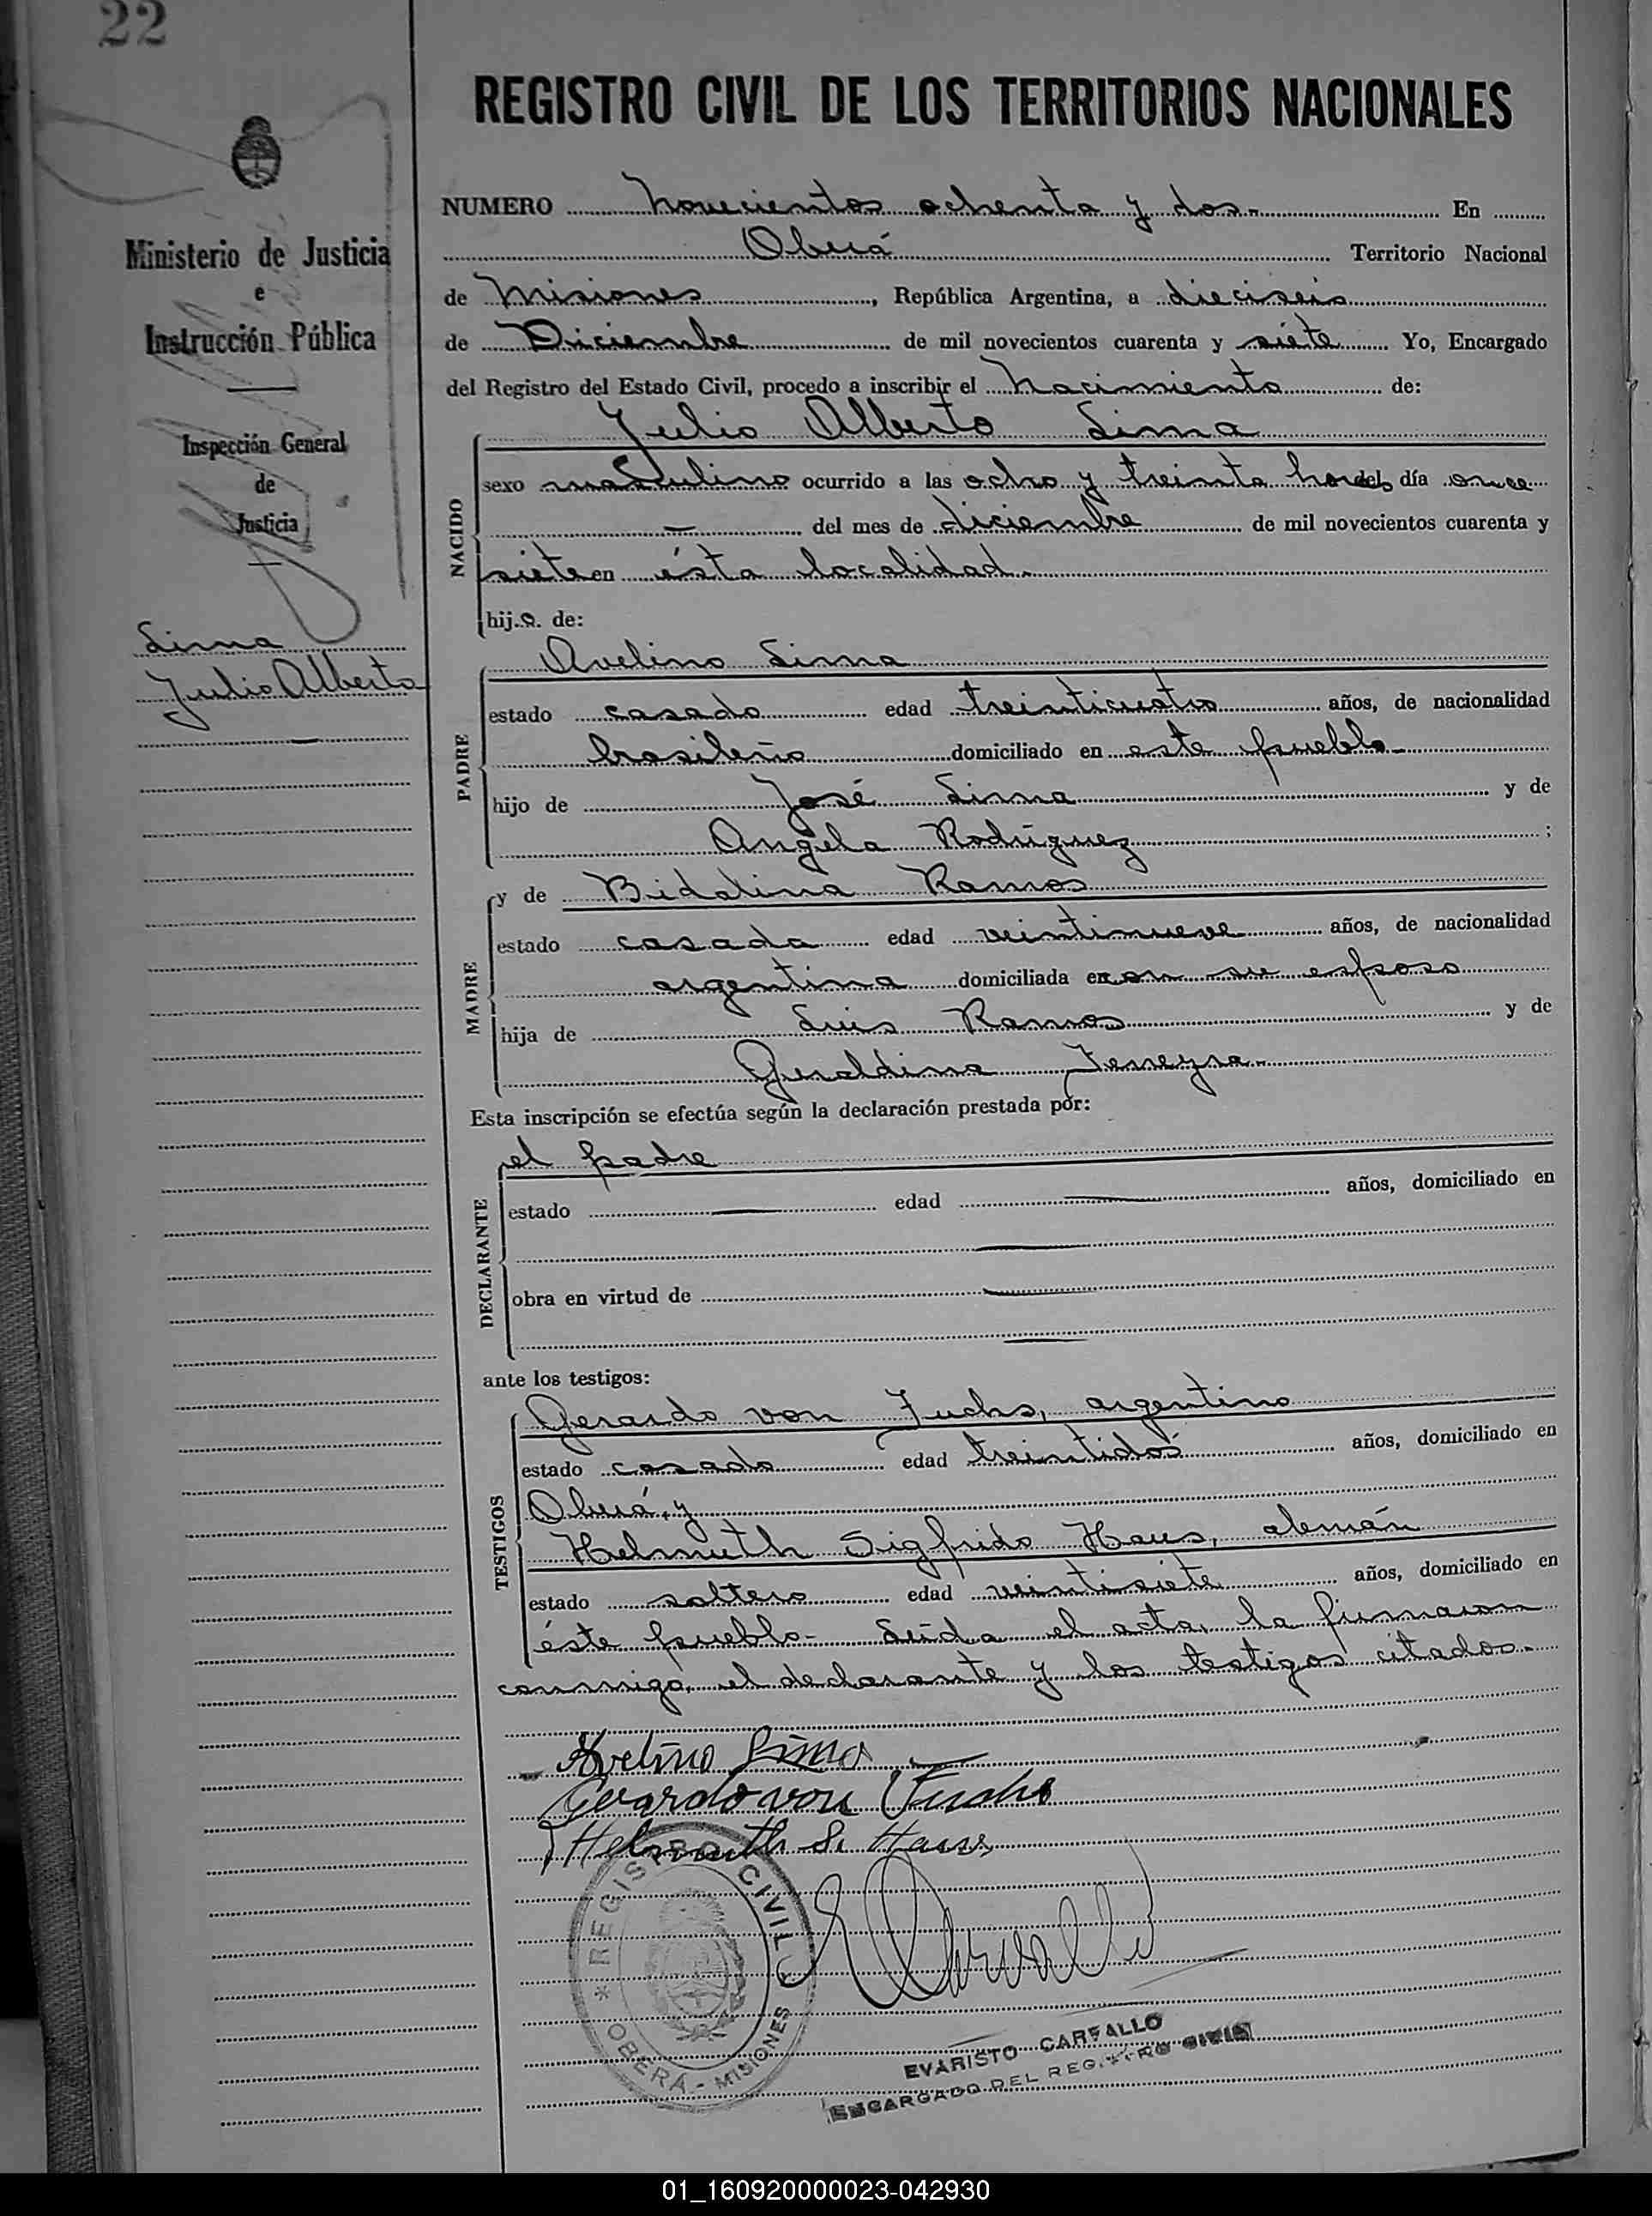 22
REGISTRO CIVIL DE LOS TERRITORIOS NACIONALES
Ministerio de Justicia
e
Instrucción Pública
Inspección General
de
Justicia
Lima
Julio Alberto
NUMERO novecientos ochenta y dos.- En
Oberá Territorio Nacional
de Misiones, República Argentina, a dieciseis
de Diciembre de mil novecientos cuarenta y siete Yo, Encargado
del Registro del Estado Civil, procedo a inscribir el nacimiento de:
NACIDO
Julio Alberto Lima
sexo masculino ocurrido a las ocho y treinta horas del día once
— del mes de diciembre de mil novecientos cuarenta y
siete en ésta localidad.
hijo de:
PADRE
Avelino Lima
estado casado edad treinticuatro años, de nacionalidad
brasileño domiciliado en este pueblo-
hijo de José Lima y de
Angela Rodriguez ;
MADRE
y de Bidalina Ramos
estado casada edad veintinueve años, de nacionalidad
argentina domiciliada con su esposo
hija de Luis Ramos y de
Geraldina Ferreyra-
Esta inscripción se efectúa según la declaración prestada por:
DECLARANTE
el padre
estado — edad — años, domiciliado en
—
obra en virtud de —
—
ante los testigos:
TESTIGOS
Gerardo von Fuchs, argentino
estado casado edad treintidós años, domiciliado en
Oberá, y
Helmuth Sigfrido Haus, alemán
estado soltero edad veintisiete años, domiciliado en
éste pueblo- Leída el acta, la firmaron
conmigo, el declarante y los testigos citados.-
Avelino Lima
Gerardo von Fuchs
Helmuth S.
REGISTRO CIVIL
OBERÁ - MISIONES
Carvallo
EVARISTO CARVALLO
ENCARGADO DEL REGISTRO CIVIL
01_160920000023-042930